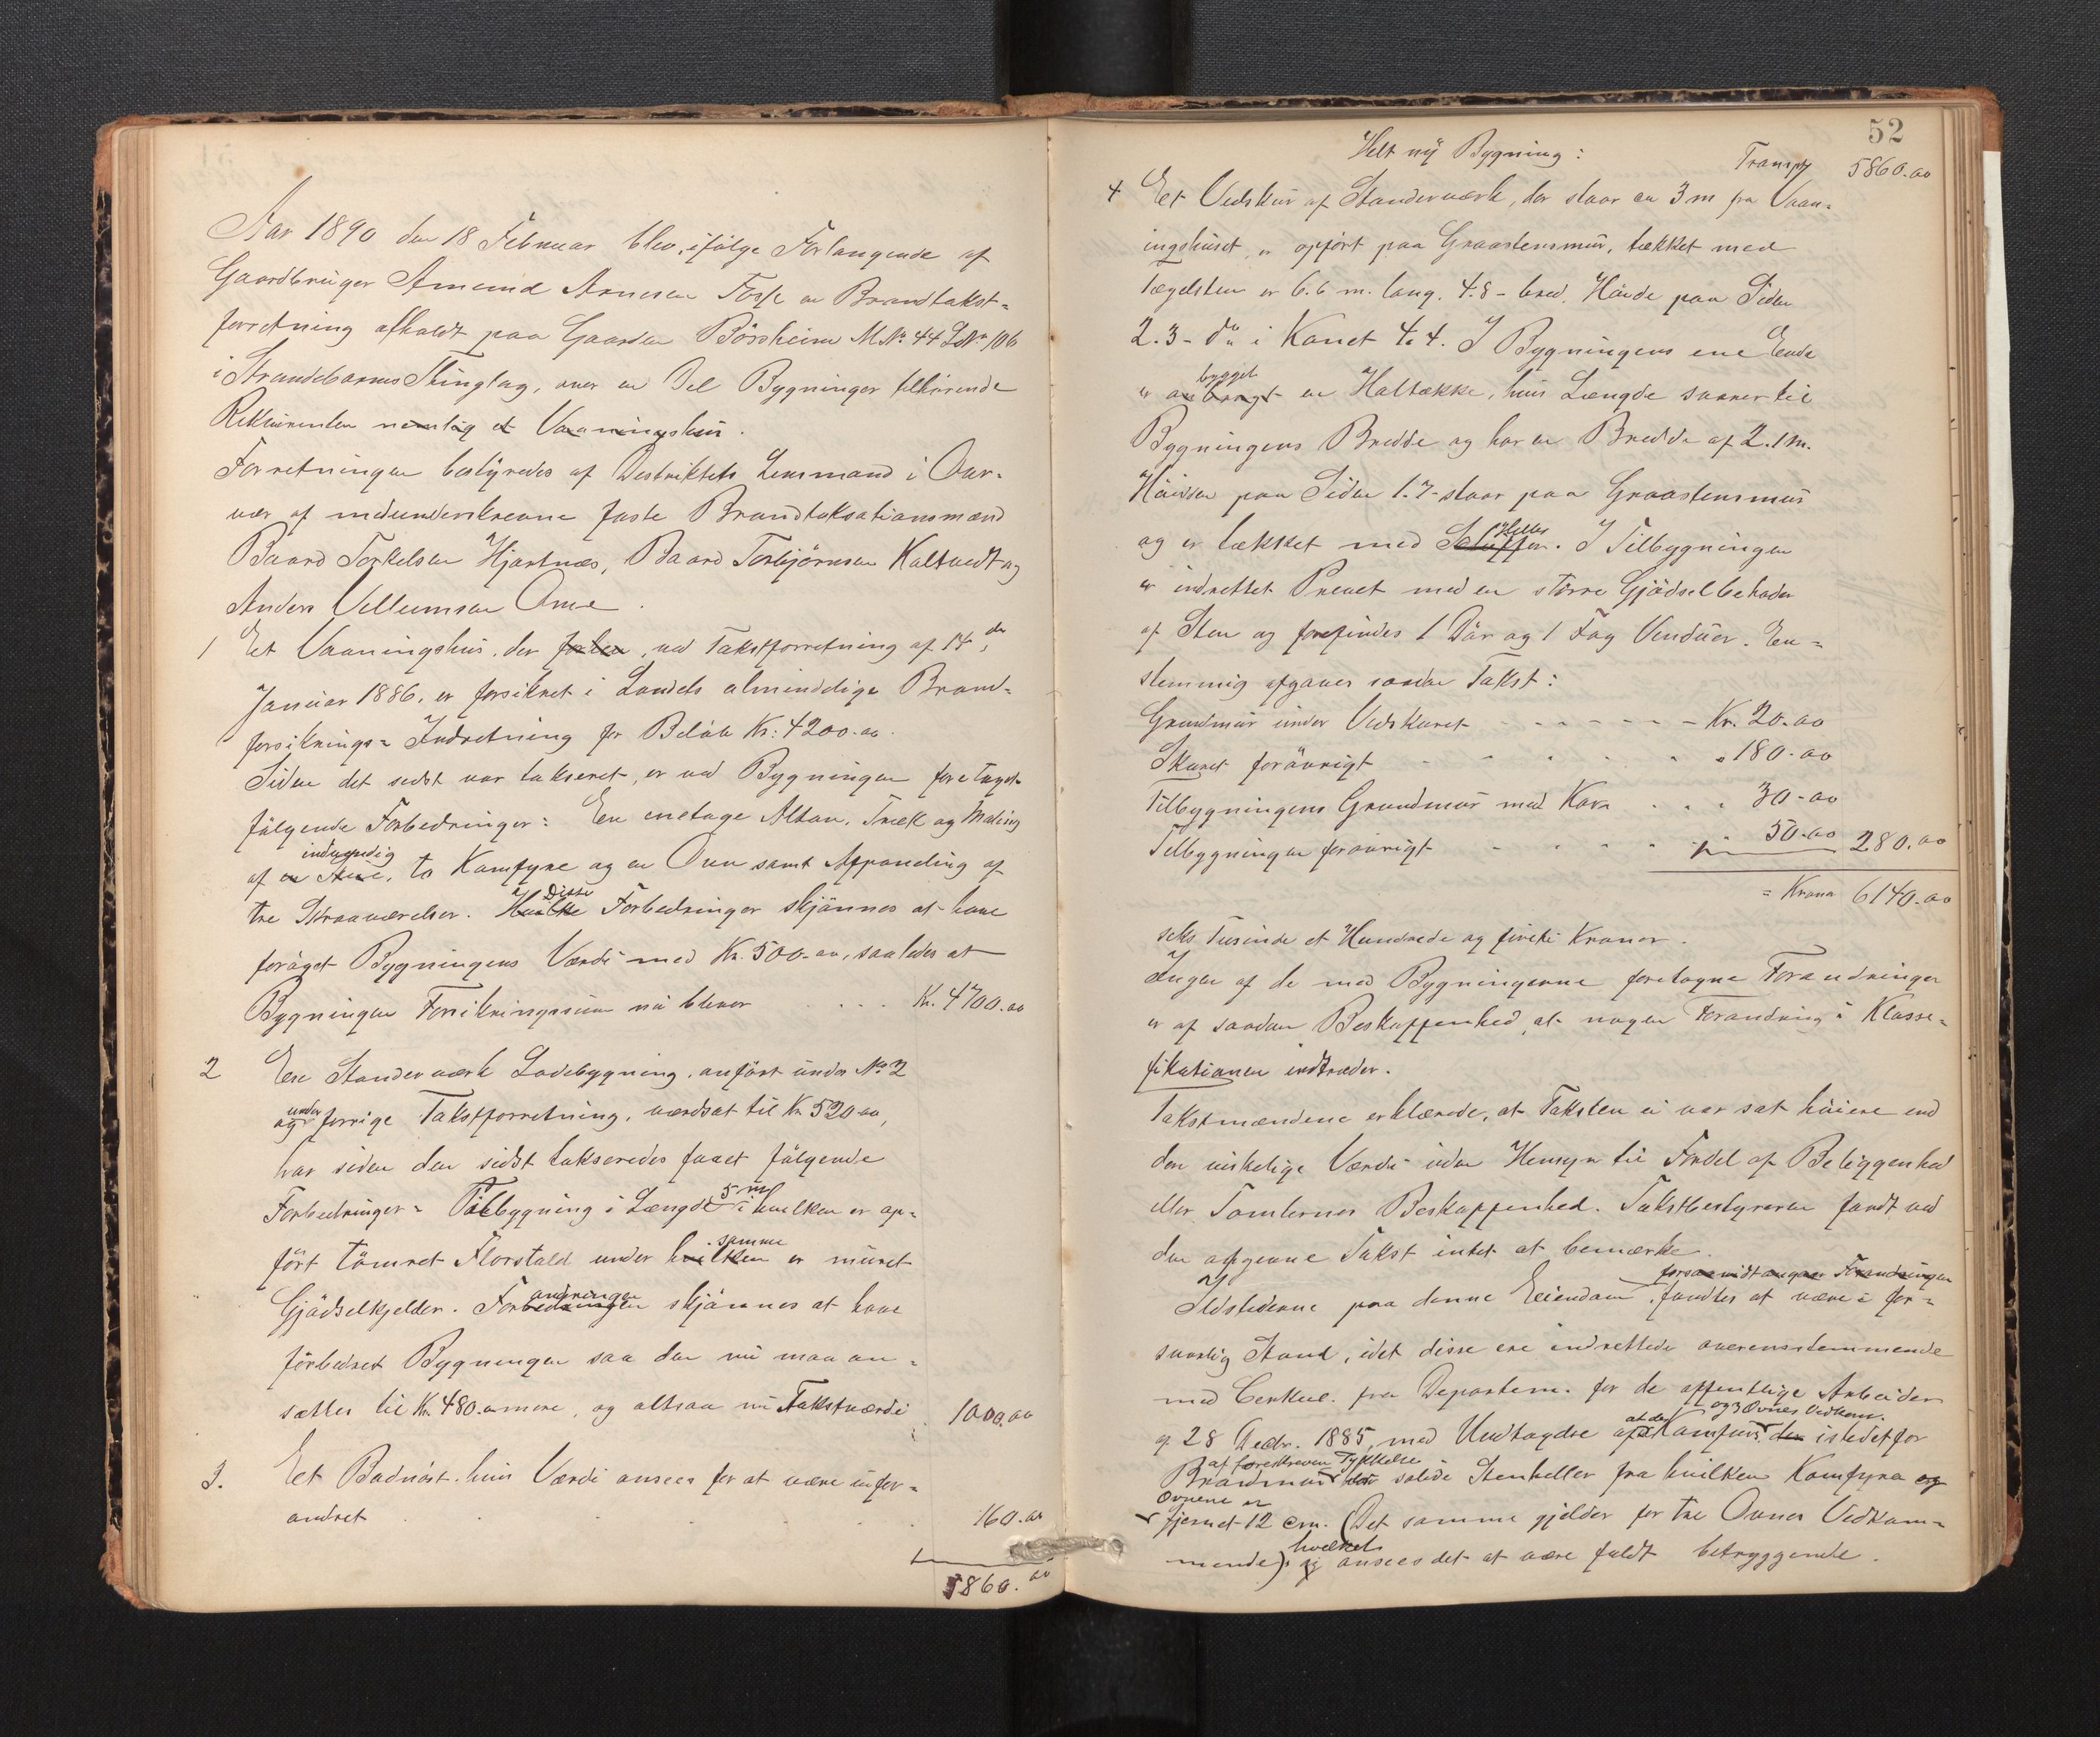 Aar 1890 den 18 Februar blev, ifølge Forlangende af
Gaardbruger Amund Arnesen Fosse en Brandtakst=
forretning afholdt paa Gaarden Børsheim M.No. 44 L.No. 106
i Strandebarms Thinglag, over en Del Bygninger tilhørende
Rekvirenten nemlig et Vaaningshus.
Forretningen bestyredes af Distriktets Lensmand i Over=
vær af medunderskrevne faste Brandtaksationsmænd
Baard Torkelsen Hjartnæs, Baard Torbjørnsen Kaltvedt og
Anders Villumsen Ome.
1 Et Vaaningshus, der forben, ved Takstforretning af 14de
Januar 1886, er forsikret i Landets almindelige Brand=
forsikrings= Indretning for Beløb Kr: 4200.00.
Siden det sidst var takseret, er ved Bygningen foretaget
følgende Forbedringer: En enetage Altan, Træk og Maling
indvendig
af en, to Komfyre og en Ovn samt Afpaneling af
Disse
tre Værelser. Hvilke Forbedringer skjønnes at have
forøget Bygningens Værdi med Kr. 500.00, saaledes at
Bygningen Forsikringssum nu bliver . . . . Kr. 4700.00
2 Een Stenderværk Ladebygning, anført under No 2
under
og forrige Takstforretning, værdsat til Kr 520.00,
har siden den sidst takseredes faaet følgende
5 m
Forbedringer = Tilbygning i Længde i hvilken er op=
samme
ført tømret Florstald under hvilken er muret
andringen
Gjødselkjelder. Forbedringen skjønnes at have
forbedret Bygningen saa den nu maa an=
sættes til Kr. 480.00 mere, og altsaa nu Takstværdi . 1000.00
3. Et Badnøst, hvis Værdi ansees for at være ufor=
andret . . . . 160.00
5860.00
52
Helt ny Bygning: Transp 5860.00
4 Et Vedskur af Stenderværk, der staar ca 3 m fra Vaan=
ingshuset, er opført paa Graastensmur, tækket med
Tægelsten er 6.6 m. lang. 4.8 - bred. Høide paa Siden
2.3 - do i Kanet 4.4. I Bygningens ene Ende
bygget
er anbragt en Haltække, hvis Længde svarer til
Bygningens Bredde og har en Bredde af 2.1 m.
Høiden paa Siden 1.7 - staar paa Graastensmur
Heller
og er tækket med Skiffer. I Tilbygningen
er indrettet Privet med en større Gjødselbeholder
af Sten og forefindes 1 Dør og 1 Fag Vinduer. En=
stemmig afgaves saadan Takst:
Grundmur under Vedskuret - - - - - - Kr. 20.00
Skuret forøvrigt - - - . . . „ 180.00
Tilbygningens Grundmur med Kar . . . 30.00
Tilbygningen forøvrigt - - . . . „ 50.00 280.00
= Kroner 6140.00
seks Tusinde et Hundrede og firети Kroner.
Ingen af de med Bygningerne foretagne Forandringer
er af saadan Beskaffenhed, at nogen Forandring i Klasse=
fikationen indtræder.
Takstmændene erklærede, at Taksten ei var sat høiere end
den virkelige Værdi uden Hensyn til Fordel af Beliggenhed
eller Tomternes Beskaffenhed. Takstbestyreren fandt ved
den afgivne Takst intet at bemærke.
forsaavidt angaar Forandringen
Ildstederne paa denne Eiendom, fandtes at være i for=
svarlig Stand, idet disse ere indrettede overensstemmende
med Cerkul. fra Departem. for de offentlige Arbeider
at der og 3 Ovnes Vedkom.
af 28 Decbr. 1885, med Undtagelse af Komfur der istedetfor
af foreskreven Tykkelse
Brandmur har solide Stenheller fra hvilken Komfyren og
Ovnene er
fjernet 12 cm. (Det samme gjelder for tre Ovnes Vedkom=
hvilket
mende). og ansees det at være fuldt betryggende.